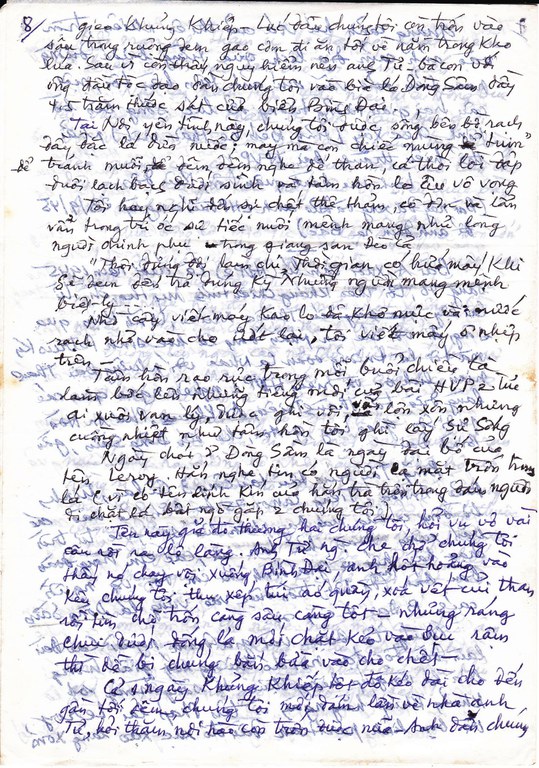 8/ gieo Khủng Khiếp - Lúc đầu chúng tôi còn trốn vào
sâu trong ruộng đem gạo cơm đi ăn tối về nằm trong kho
lúa. Sau vì còn thấy nguy hiểm nên anh Tư bà con với
ông đầu tộc đạo dẫn chúng tôi vào bìa lá Đồng Sầm đầy
4,5 trăm thước sát cửa biển Bình Đại.
Tại Nơi yên tĩnh này, chúng tôi được sống bên bờ rạch
đầy đặc lá dừa nước; may mà còn chiếc mùng
để tránh muỗi, đêm đêm nghe để than, cá thòi lòi đập
đuôi lạch bạch dưới sình và tâm hồn lo âu vô vọng
Tôi hay nghĩ đến sự chết thê thảm, cô đơn và lẩn
vẩn trong trí óc sự tiếc nuối mênh mang như lòng
người chinh phu trong giang san đeo lá
"Thôi đừng đợi làm chi Thời gian có hứa mấy! Khi
sẽ đem đến trả đúng kỳ Những người mang mệnh
biệt ly
Nhờ cây viết máy Kaolo đã khô mực và nước
rạch nhỏ vào cho ướt lại, tôi viết mấy ô nhịp
trên -
Tâm hồn rạo rực trong mỗi buổi chiều tà
làm bốc lên những tiếng của bài HVP 2 lúc
đi xuôi vạn lý, đưa ghi vội, lộn xộn nhưng
cuồng nhiệt như tâm hồn tôi ghi lấy Sự Sống
Ngày chót ở Đồng Sầm là ngày đại bố của
tên Leroy. Hắn nghe tin có người lạ mặt trốn trong
lá (vì có tên lính kín của hắn trà trộn trong đám người
đi chặt lá bất ngờ gặp 2 chúng tôi)
Tên này giả đò thương hại chúng tôi, hỏi vu vơ vài
câu rồi ra lộ làng. Anh Tư ng. che chở chúng tôi
thấy nó chạy vội xuống Bình Đại anh hốt hoảng vào
kêu chúng tôi thu xếp túi áo quần, xoá vết củi than
rồi tìm chỗ trốn càng sâu càng tốt - nhưng ráng
chui dưới đống lá mới chặt kéo vào bụi rậm
thì dễ bị chúng bắn bừa vào cho chết -
Cả 1 ngày Khủng Khiếp tột độ kéo dài cho đến
gần tối đêm chúng tôi mới dám lần về nhà anh
Tư, hỏi thăm nơi nào còn trốn được nào - Anh dẫn chúng